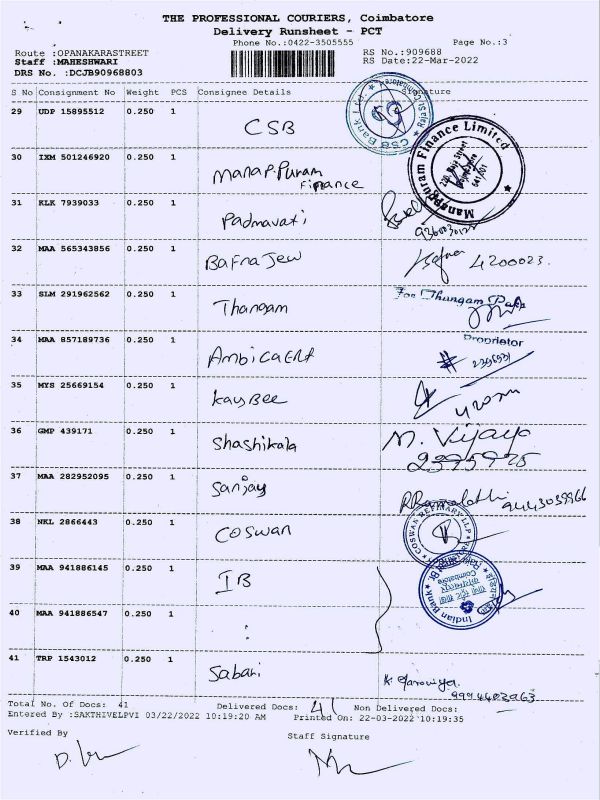 THE PROFESSIONAL COURIERS, Coimbatore
Delivery Runsheet - PCT
Phone No.:0422-3505555 Page No.:3
Route :OPANAKARASTREET RS No.:909688
Staff :MAHESHWARI RS Date:22-Mar-2022
DRS No. :DCJB90968803
S No Consignment No Weight PCS Consignee Details Signature
29 UDP 15895512 0.250 1 CSB
CSB Bank Ltd.
30 IXM 501246920 0.250 1 Manappuram Finance
Manappuram Finance Limited
31 KLK 7939033 0.250 1 Padmavati
32 MAA 565343856 0.250 1 Bafna Jew 4200023
33 SLM 291962562 0.250 1 Thangam
For Thungam
Proprietor
34 MAA 857189736 0.250 1 Ambica Ent
35 MYS 25669154 0.250 1 KayBee
36 GMP 439171 0.250 1 Shashikala M. Vijaya
2395925
37 MAA 282952095 0.250 1 Sanjay
9443039966
38 NKL 2866443 0.250 1 COSWAN
COSWAN REFINARY LLP
39 MAA 941886145 0.250 1 IB
Indian Bank
Coimbatore
40 MAA 941886547 0.250 1
41 TRP 1543012 0.250 1 Sabari
9994403963
Total No. Of Docs: 41 Delivered Docs: 41 Non Delivered Docs:
Entered By :SAKTHIVELPVI 03/22/2022 10:19:20 AM Printed On: 22-03-2022 10:19:35
Verified By Staff Signature